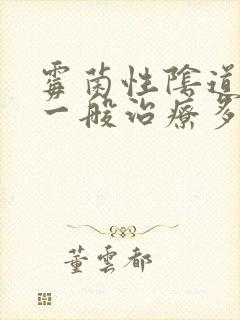 霉菌性陰道
一般治療多
董雲都